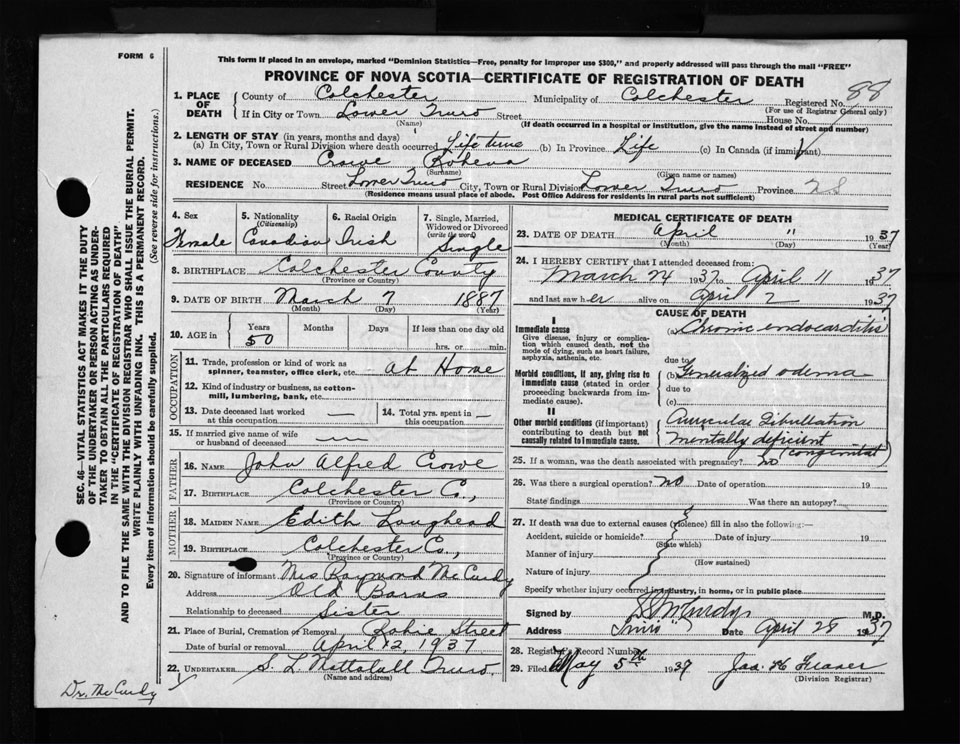 FORM 6
This form if placed in an envelope, marked "Dominion Statistics—Free, penalty for improper use $300," and properly addressed will pass through the mail "FREE"
PROVINCE OF NOVA SCOTIA—CERTIFICATE OF REGISTRATION OF DEATH
SEC. 46—VITAL STATISTICS ACT MAKES IT THE DUTY
OF THE UNDERTAKER OR PERSON ACTING AS UNDER-
TAKER TO OBTAIN ALL THE PARTICULARS REQUIRED
IN THE "CERTIFICATE OF REGISTRATION OF DEATH"
AND TO FILE THE SAME WITH THE DIVISION REGISTRAR WHO SHALL ISSUE THE BURIAL PERMIT.
WRITE PLAINLY WITH UNFADING INK. THIS IS A PERMANENT RECORD.
Every item of information should be carefully supplied. (See reverse side for instructions.)
1. PLACE OF DEATH County of Colchester Municipality of Colchester Registered No. 88
(For use of Registrar General only)
If in City or Town Lower Truro Street House No.
(Name) (If death occurred in a hospital or institution, give the name instead of street and number)
2. LENGTH OF STAY (in years, months and days)
(a) In City, Town or Rural Division where death occurred Life time (b) In Province Life (c) In Canada (if immigrant)
3. NAME OF DECEASED Crowe Roheva
(Surname) (Given name or names)
RESIDENCE No. Street Lower Truro City, Town or Rural Division Lower Truro Province NS
(Residence means usual place of abode. Post Office Address for residents in rural parts not sufficient)
4. Sex 5. Nationality (Citizenship) 6. Racial Origin 7. Single, Married, Widowed or Divorced (write the word)
Female Canadian Irish Single
8. BIRTHPLACE Colchester County
(Province or Country)
9. DATE OF BIRTH March 7 1887
(Month) (Day) (Year)
10. AGE in Years Months Days If less than one day old
50 hrs. or min.
OCCUPATION
11. Trade, profession or kind of work as spinner, teamster, office clerk, etc. at Home
12. Kind of industry or business, as cotton-mill, lumbering, bank, etc.
13. Date deceased last worked at this occupation — 14. Total yrs. spent in this occupation —
15. If married give name of wife or husband of deceased —
FATHER
16. NAME John Alfred Crowe
17. BIRTHPLACE Colchester Co.,
(Province or Country)
MOTHER
18. MAIDEN NAME Edith Loughead
19. BIRTHPLACE Colchester Co.,
(Province or Country)
20. Signature of informant Mrs Raymond McCurdy
Address Old Barns
Relationship to deceased Sister
21. Place of Burial, Cremation or Removal Robie Street
Date of burial or removal April 12, 1937
22. UNDERTAKER S. L. Truro
(Name and address)
Dr. McCurdy
MEDICAL CERTIFICATE OF DEATH
23. DATE OF DEATH April 11 1937
(Month) (Day) (Year)
24. I HEREBY CERTIFY that I attended deceased from:
March 24 1937 to April 11 1937
and last saw her alive on April 2 1937
CAUSE OF DEATH
I
Immediate cause (a) Chronic endocarditis
Give disease, injury or complication which caused death, not the mode of dying, such as heart failure, asphyxia, asthenia, etc.
due to
Morbid conditions, if any, giving rise to immediate cause (stated in order proceeding backwards from immediate cause). (b) Generalized odema
due to
(c)
II
Other morbid conditions (if important) contributing to death but not causally related to immediate cause. Auricular Fibrillation
mentally deficient (congenital)
25. If a woman, was the death associated with pregnancy? no
26. Was there a surgical operation? no Date of operation 19
State findings Was there an autopsy?
27. If death was due to external causes (violence) fill in also the following:—
Accident, suicide or homicide? Date of injury 19
(State which)
Manner of injury
(How sustained)
Nature of injury
Specify whether injury occurred in industry, in home, or in public place
Signed by McCurdy M.D.
Address Truro Date April 28 1937
28. Registrar's Record Number
29. Filed May 5th 1937 Jas. H.
(Division Registrar)